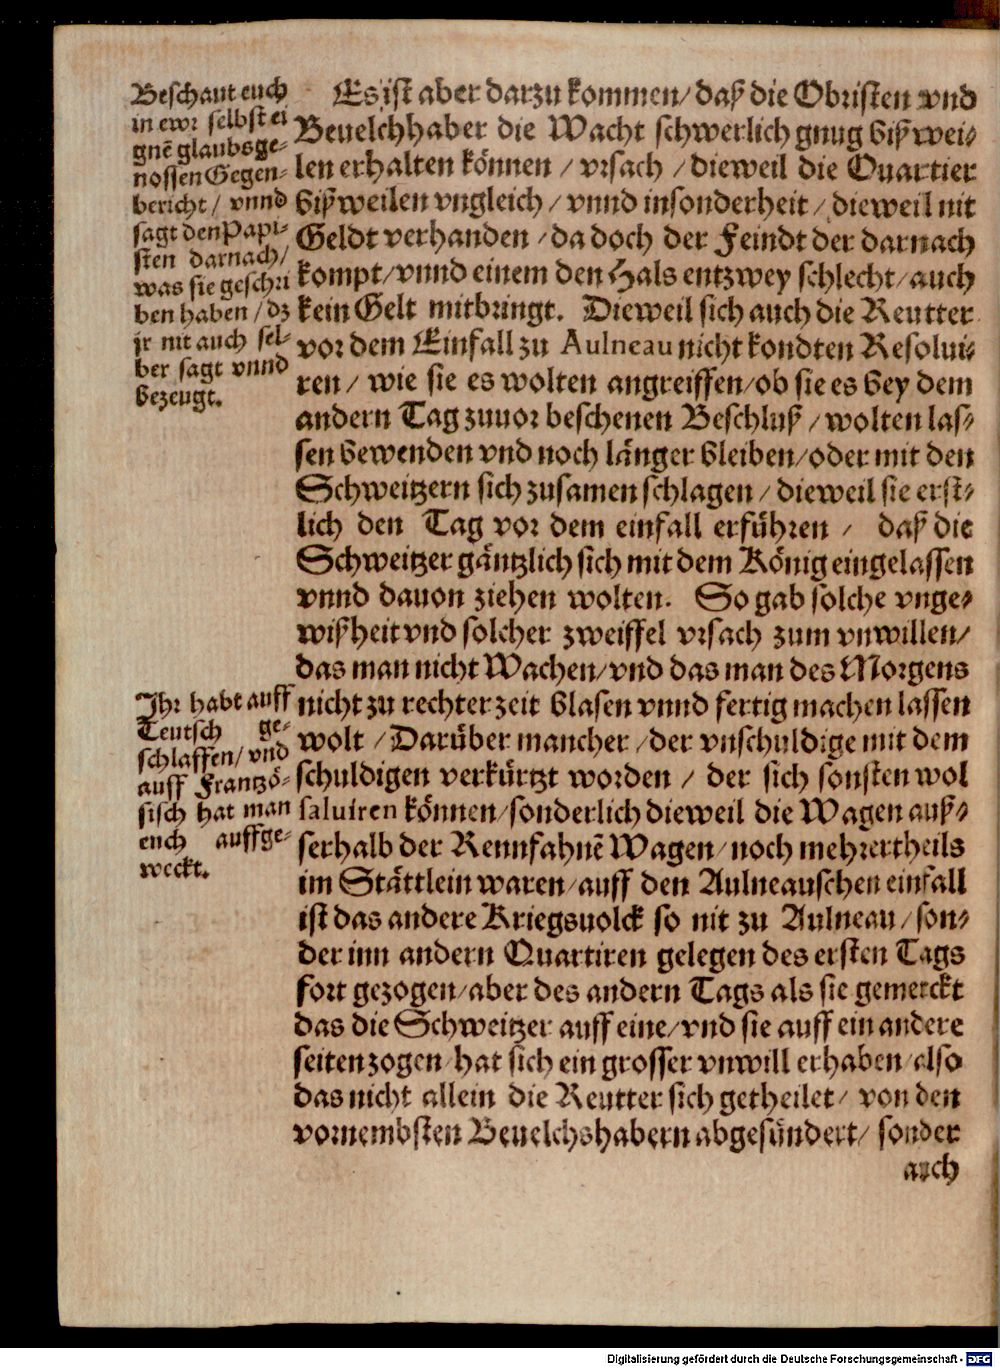 Beschaut euch
in ewr selbst ei
gnẽ glaubsge-
nossen Gegen-
bericht / vnnd
sagt den Papi-
sten darnach/
was sie geschri
ben haben / dz
jr nit auch sel-
ber sagt vnnd
bezeugt.
Es ist aber darzu kommen/ daß die Obristen vnd
Beuelchhaber die Wacht schwerlich gnug bißwei-
len erhalten können / vrsach / dieweil die Quartier
bißweilen vngleich / vnnd insonderheit / dieweil nit
Geldt verhanden / da doch der Feindt der darnach
kompt/ vnnd einem den Hals entzwey schlecht/ auch
kein Gelt mitbringt. Dieweil sich auch die Reutter
vor dem Einfall zu Aulneau nicht kondten Resolui-
ren / wie sie es wolten angreiffen/ ob sie es bey dem
andern Tag zuuor beschenen Beschluß / wolten las-
sen bewenden vnd noch länger bleiben/ oder mit den
Schweitzern sich zusamen schlagen / dieweil sie erst-
lich den Tag vor dem einfall erführen / daß die
Schweitzer gäntzlich sich mit dem König eingelassen
vnnd dauon ziehen wolten. So gab solche vnge-
wißheit vnd solcher zweiffel vrsach zum vnwillen/
das man nicht Wachen/ vnd das man des Morgens
nicht zu rechter zeit blasen vnnd fertig machen lassen
wolt / Darüber mancher / der vnschuldige mit dem
schuldigen verkürtzt worden / der sich sonsten wol
saluiren können/ sonderlich dieweil die Wagen auß-
serhalb der Rennfahnẽ Wagen/ noch mehrertheils
im Stättlein waren/ auff den Aulneauschen einfall
ist das andere Kriegsuolck so nit zu Aulneau / son-
der inn andern Quartiren gelegen des ersten Tags
fort gezogen/ aber des andern Tags als sie gemerckt
das die Schweitzer auff eine/ vnd sie auff ein andere
seiten zogen/ hat sich ein grosser vnwill erhaben/ also
das nicht allein die Reutter sich getheilet / von den
vornembsten Beuelchshabern abgesündert/ sonder
auch
Ihr habt auff
Teutsch ge-
schlaffen/ vnd
auff Frantzö-
sisch hat man
euch auffge-
weckt.
Digitalisierung gefördert durch die Deutsche Forschungsgemeinschaft - DFG